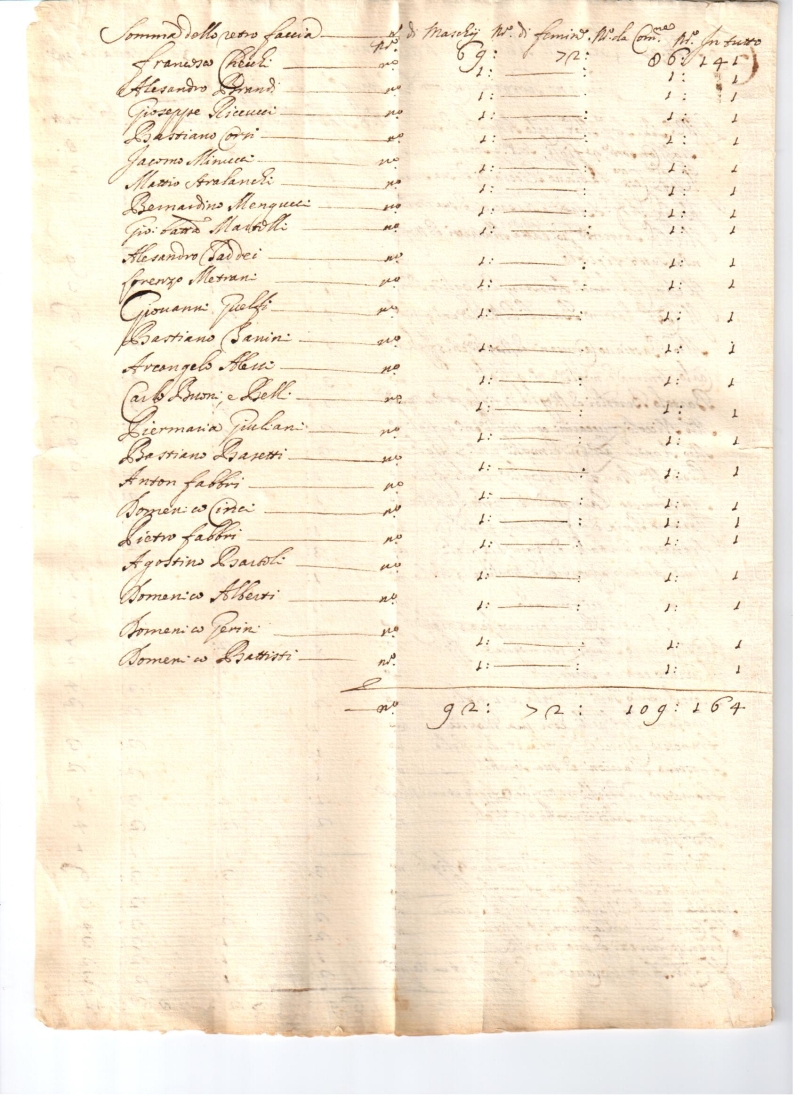 Somma dello retro faccia nº. di Maschij nº. di femine nº. da Com.ne nº. In tutto
69: 72: 86: 141
Francesco Checchi nº 1: : 1: 1
Alesandro Brandi nº 1: : 1: 1
Gioseppe Riccucci nº 1: : 1: 1
Bastiano Corsi nº 1: : 1: 1
Jacomo Minucci nº 1: : 1: 1
Mattio nº 1: : 1: 1
Bernardino Mengucci nº 1: : 1: 1
Gio: Batta Martelli nº 1: : 1: 1
Alesandro Taddei nº 1: : 1: 1
Lorenzo Metrani nº 1: : 1: 1
Giovanni Guelfi nº 1: : 1: 1
Bastiano Zanini nº 1: : 1: 1
Arcangelo Alessi nº 1: : 1: 1
Carlo Buoni, e Belli nº 1: : 1: 1
Piermaria Giuliani nº 1: : 1: 1
Bastiano Basetti nº 1: : 1: 1
Anton Fabbri nº 1: : 1: 1
Domenico Cinci nº 1: : 1: 1
Pietro Fabbri nº 1: : 1: 1
Agostino Bartoli nº 1: : 1: 1
Domenico Alberti nº 1: : 1: 1
Domenico Gerini nº 1: : 1: 1
Domenico Battisti nº 1: : 1: 1
nº 92: 72: 109: 164